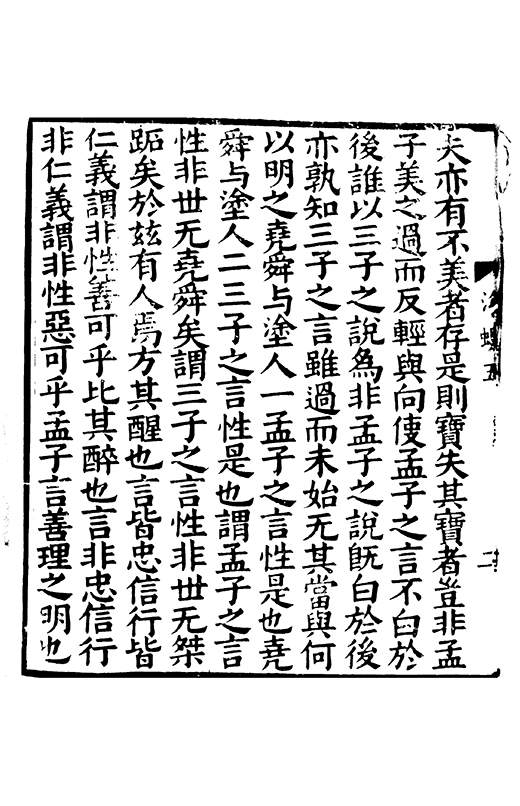 夫亦有不美者存是則寶失其寶者豈非孟
子美之過而反輕與向使孟子之言不白於
後誰以三子之說為非孟子之說既白於後
亦孰知三子之言雖過而未始无其當與何
以明之堯舜与塗人一孟子之言性是也堯
舜与塗人二三子之言性是也謂孟子之言
性非世无堯舜矣謂三子之言性非世无桀
跖矣於茲有人焉方其醒也言皆忠信行皆
仁義謂非性善可乎比其醉也言非忠信行
非仁義謂非性惡可乎孟子言善理之明也